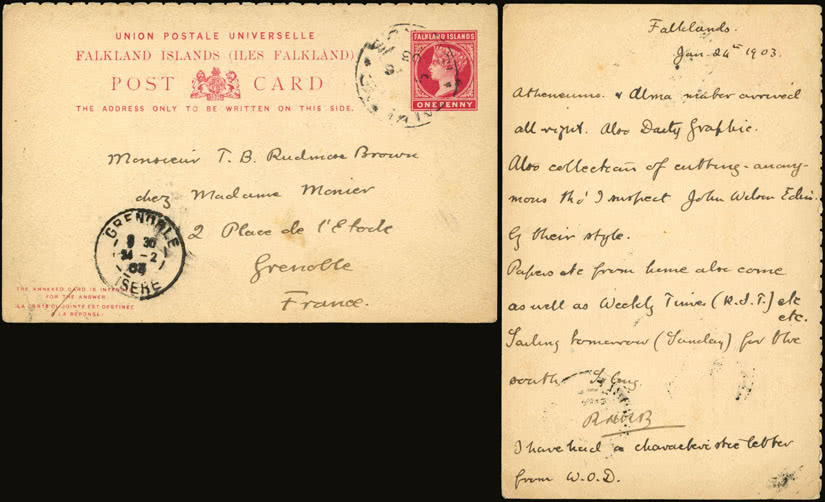 UNION POSTALE UNIVERSELLE
FALKLAND ISLANDS (ILES FALKLAND)
POST CARD
THE ADDRESS ONLY TO BE WRITTEN ON THIS SIDE.
FALKLAND ISLANDS
ONE PENNY
Monsieur T. B. Rudmose Brown
chez Madame Monier
2 Place de l'Etoile
Grenoble
France.
GRENOBLE
8 30
24 - 2
03
ISERE
THE ANNEXED CARD IS INTENDED
FOR THE ANSWER.
(LA CARTE CI-JOINTE EST DESTINÉE
À LA RÉPONSE.)
Falklands.
Jan. 24th 1903.
Atheneums & Alma mater arrived
all right. Also Daily Graphic.
Also collection of cutting - anony-
mous tho' I suspect John Wilson Edin.
by their style.
Papers etc from home also come
as well as Weekly Times (R.S.T.) etc
etc.
Sailing tomorrow (Sunday) for the
south. So long.
RNRB
I have had a characteristic letter
from W.O.D.